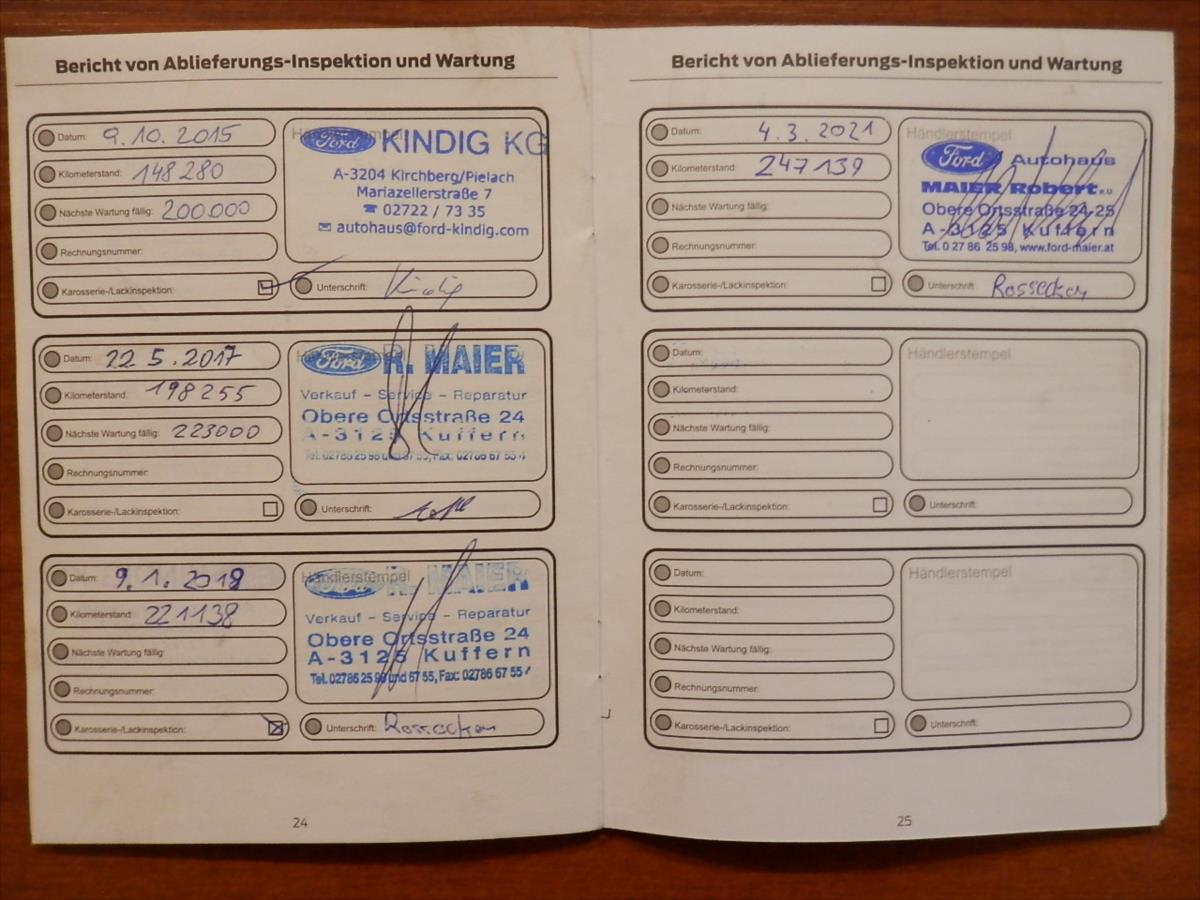 Bericht von Ablieferungs-Inspektion und Wartung
Datum: 9.10.2015
Kilometerstand: 148280
Nächste Wartung fällig: 200.000
Rechnungsnummer:
Karosserie-/Lackinspektion:
Händlerstempel
Ford KINDIG KG
A-3204 Kirchberg/Pielach
Mariazellerstraße 7
☎ 02722 / 73 35
✉ autohaus@ford-kindig.com
Unterschrift: Kindig
Datum: 22 5.2017
Kilometerstand: 198255
Nächste Wartung fällig: 223000
Rechnungsnummer:
Karosserie-/Lackinspektion:
Ford R. MAIER
Verkauf - Service - Reparatur
Obere Ortsstraße 24
A-3125 Kuffern
Tel. 02786 25 98 und 67 55, Fax: 02786 67 55 4
Unterschrift:
Datum: 9.1.2018
Kilometerstand: 221138
Nächste Wartung fällig:
Rechnungsnummer:
Karosserie-/Lackinspektion:
Händlerstempel
Ford R. MAIER
Verkauf - Service - Reparatur
Obere Ortsstraße 24
A-3125 Kuffern
Tel. 02786 25 98 und 67 55, Fax: 02786 67 55 4
Unterschrift: Rossecker
24
Bericht von Ablieferungs-Inspektion und Wartung
Datum: 4.3.2021
Kilometerstand: 247139
Nächste Wartung fällig:
Rechnungsnummer:
Karosserie-/Lackinspektion:
Händlerstempel
Ford Autohaus
MAIER Robert e.U.
Obere Ortsstraße 24-25
A-3125 Kuffern
Tel. 0 27 86 25 98, www.ford-maier.at
Unterschrift: Rossecker
Datum:
Kilometerstand:
Nächste Wartung fällig:
Rechnungsnummer:
Karosserie-/Lackinspektion:
Händlerstempel
Unterschrift:
Datum:
Kilometerstand:
Nächste Wartung fällig:
Rechnungsnummer:
Karosserie-/Lackinspektion:
Händlerstempel
Unterschrift:
25